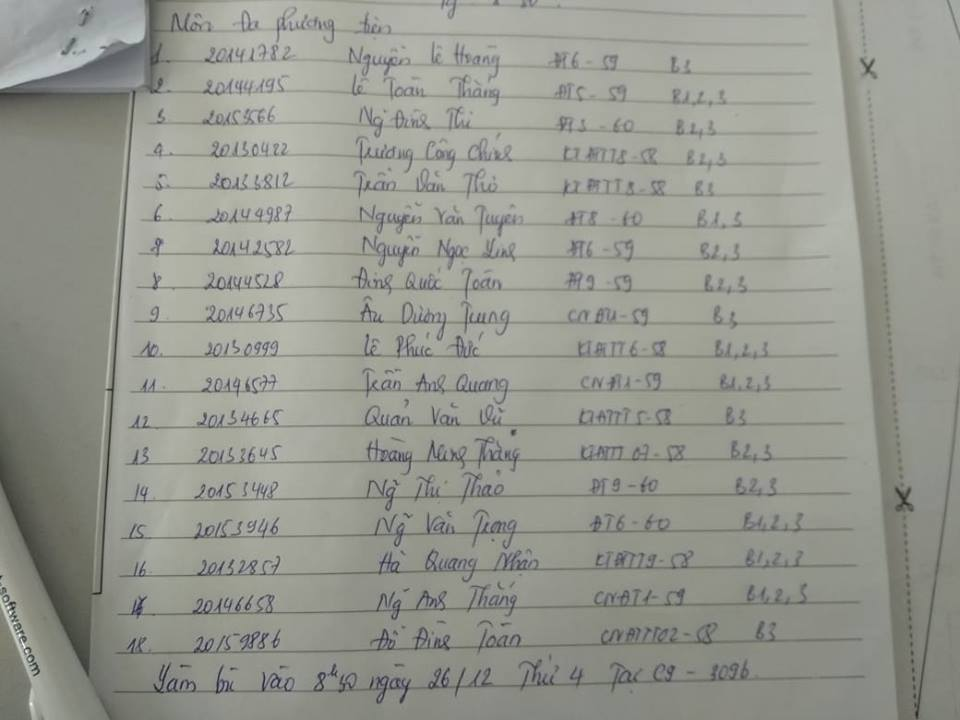 Môn Đa phương tiện
1. 20141782 Nguyễn Lê Hoàng ĐT6-59 B3
2. 20144195 Lê Toàn Thắng ĐT5-59 B1,2,3
3 20153566 Ng Đình Thi ĐT3-60 B2,3
4. 20130422 Trương Công Chính KTĐTTT8-58 B2,3
5. 20133812 Trần Văn Thơ KTĐTTT8-58 B3
6. 20144987 Nguyễn Văn Tuyên ĐT8-60 B1,3
7 20142582 Nguyễn Ngọc Linh ĐT6-59 B2,3
8 20144528 Đinh Quốc Toàn ĐT9-59 B2,3
9. 20146735 Âu Dương Trung B3
10. 20130999 Lê Phúc Đức KTĐTTT6-58 B1,2,3
11. 20146577 Trần Anh Quang CNĐT1-59 B1,2,3
12. 20134665 Quản Văn Vũ KTĐTTT5-58 B3
13 20133645 Hoàng Thắng 07-58 B2,3
14. 20153448 Ng̃ Thị Thảo ĐT9-60 B2,3
15. 20153946 Ng̃ Văn Trọng ĐT6-60 B1,2,3
16. 20132857 Hà Quang Nhân KTĐTTT9-58 B1,2,3
17. 20146658 Ng̃ Anh Thắng CNĐT1-59 B1,2,3
18. 20159886 Đỗ Đình Toàn 02-58 B3
Làm bù vào 8h30 ngày 26/12 Thứ 4 Tại C9-309b.
-software.com